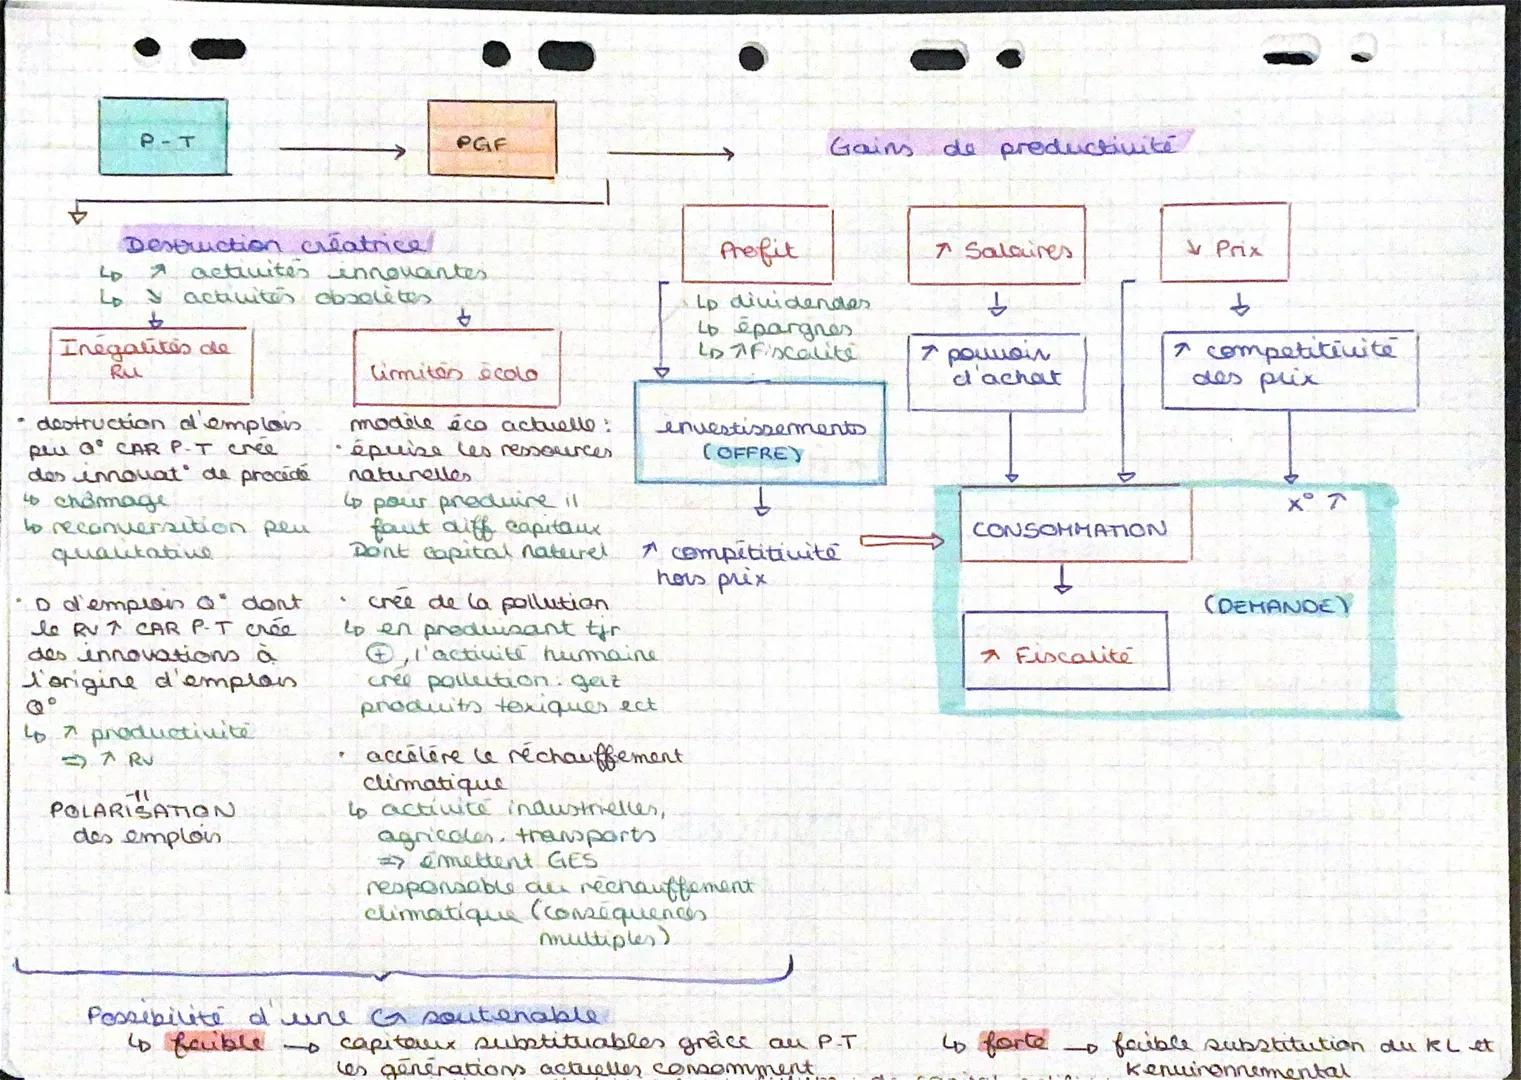 P-T
PGF
Gains de productivité
Destruction créatrice
↳ ↗ activités innovantes
↳ ↘ activités obsolètes
Profit
↗ Salaires
↘ Prix
↳ dividendes
↳ épargnes
↳ ↗ Fiscalité
↗ pouvoir
d'achat
↗ compétitivité
des prix
Inégalités de
Ru
limites écolo
investissements
(OFFRE)
• destruction d'emplois
peu Q° CAR P-T crée
des innovat° de procédé
↳ chômage
↳ reconversition peu
qualitative
modèle éco actuelle :
• épuise les ressources
naturelles
↳ pour produire il
faut diff capitaux
Dont capital naturel
↗ compétitivité
hors prix
CONSOMMATION
X° ↗
(DEMANDE)
↗ Fiscalité
• D d'emplois Q° dont
le RV ↗ CAR P-T crée
des innovations à
l'origine d'emplois
Q°
↳ ↗ productivité
⇒ ↗ RV
=
POLARISATION
des emplois
• crée de la pollution
↳ en produisant tjr
⊕, l'activité humaine
crée pollution : gaz
produits toxiques ect
• accélère le réchauffement
climatique
↳ activité industrielles,
agricoles, transports
⇒ émettent GES
responsable du réchauffement
climatique (conséquences
multiples)
Possibilité d'une G soutenable
↳ faible → capitaux substituables grâce au P-T
les générations actuelles consomment
↳ forte → faible substitution du KL et
K environnemental